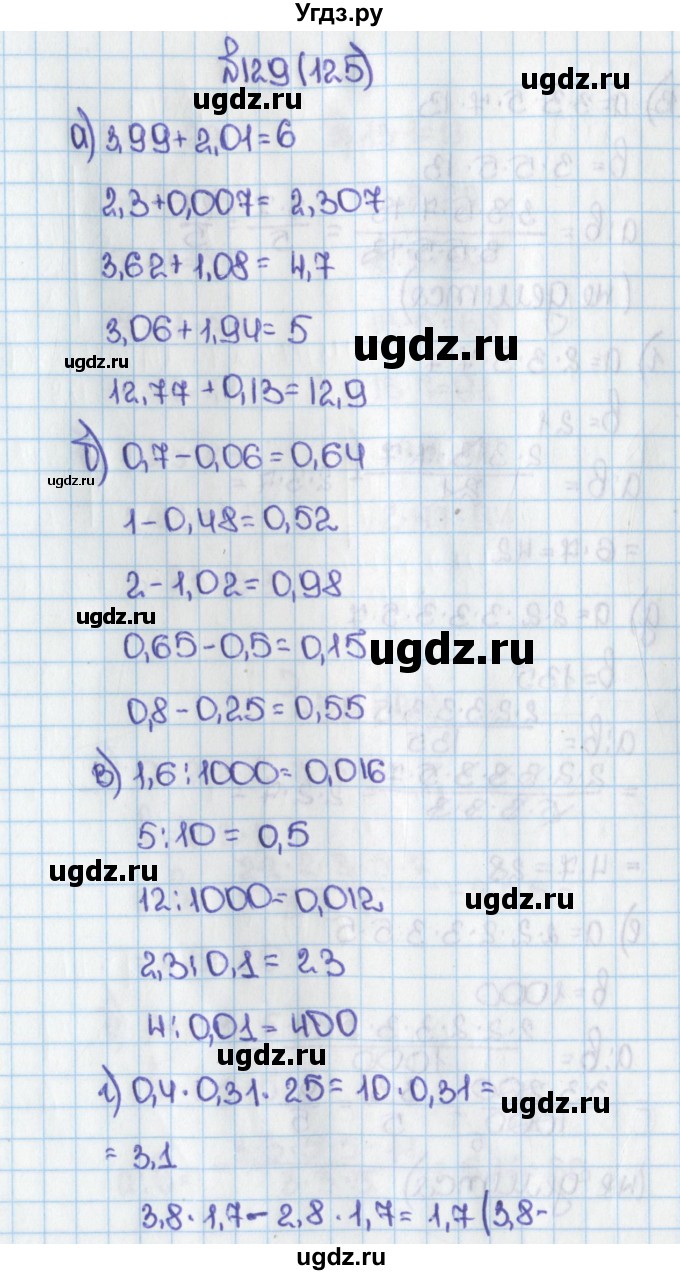 Угдз.ру
№129 (125)
а) 3,99 + 2,01 = 6
2,3 + 0,007 = 2,307
3,62 + 1,08 = 4,7
3,06 + 1,94 = 5
12,77 + 0,13 = 12,9
б) 0,7 - 0,06 = 0,64
1 - 0,48 = 0,52
2 - 1,02 = 0,98
0,65 - 0,5 = 0,15
0,8 - 0,25 = 0,55
в) 1,6 : 1000 = 0,016
5 : 10 = 0,5
12 : 1000 = 0,012
2,3 : 0,1 = 23
4 : 0,01 = 400
г) 0,4 · 0,31 · 25 = 10 · 0,31 =
= 3,1
3,8 · 1,7 - 2,8 · 1,7 = 1,7 (3,8 -
ugdz.ru
ugdz.ru
ugdz.ru
ugdz.ru
ugdz.ru
ugdz.ru
ugdz.ru
ugdz.ru
ugdz.ru
ugdz.ru
ugdz.ru
ugdz.ru